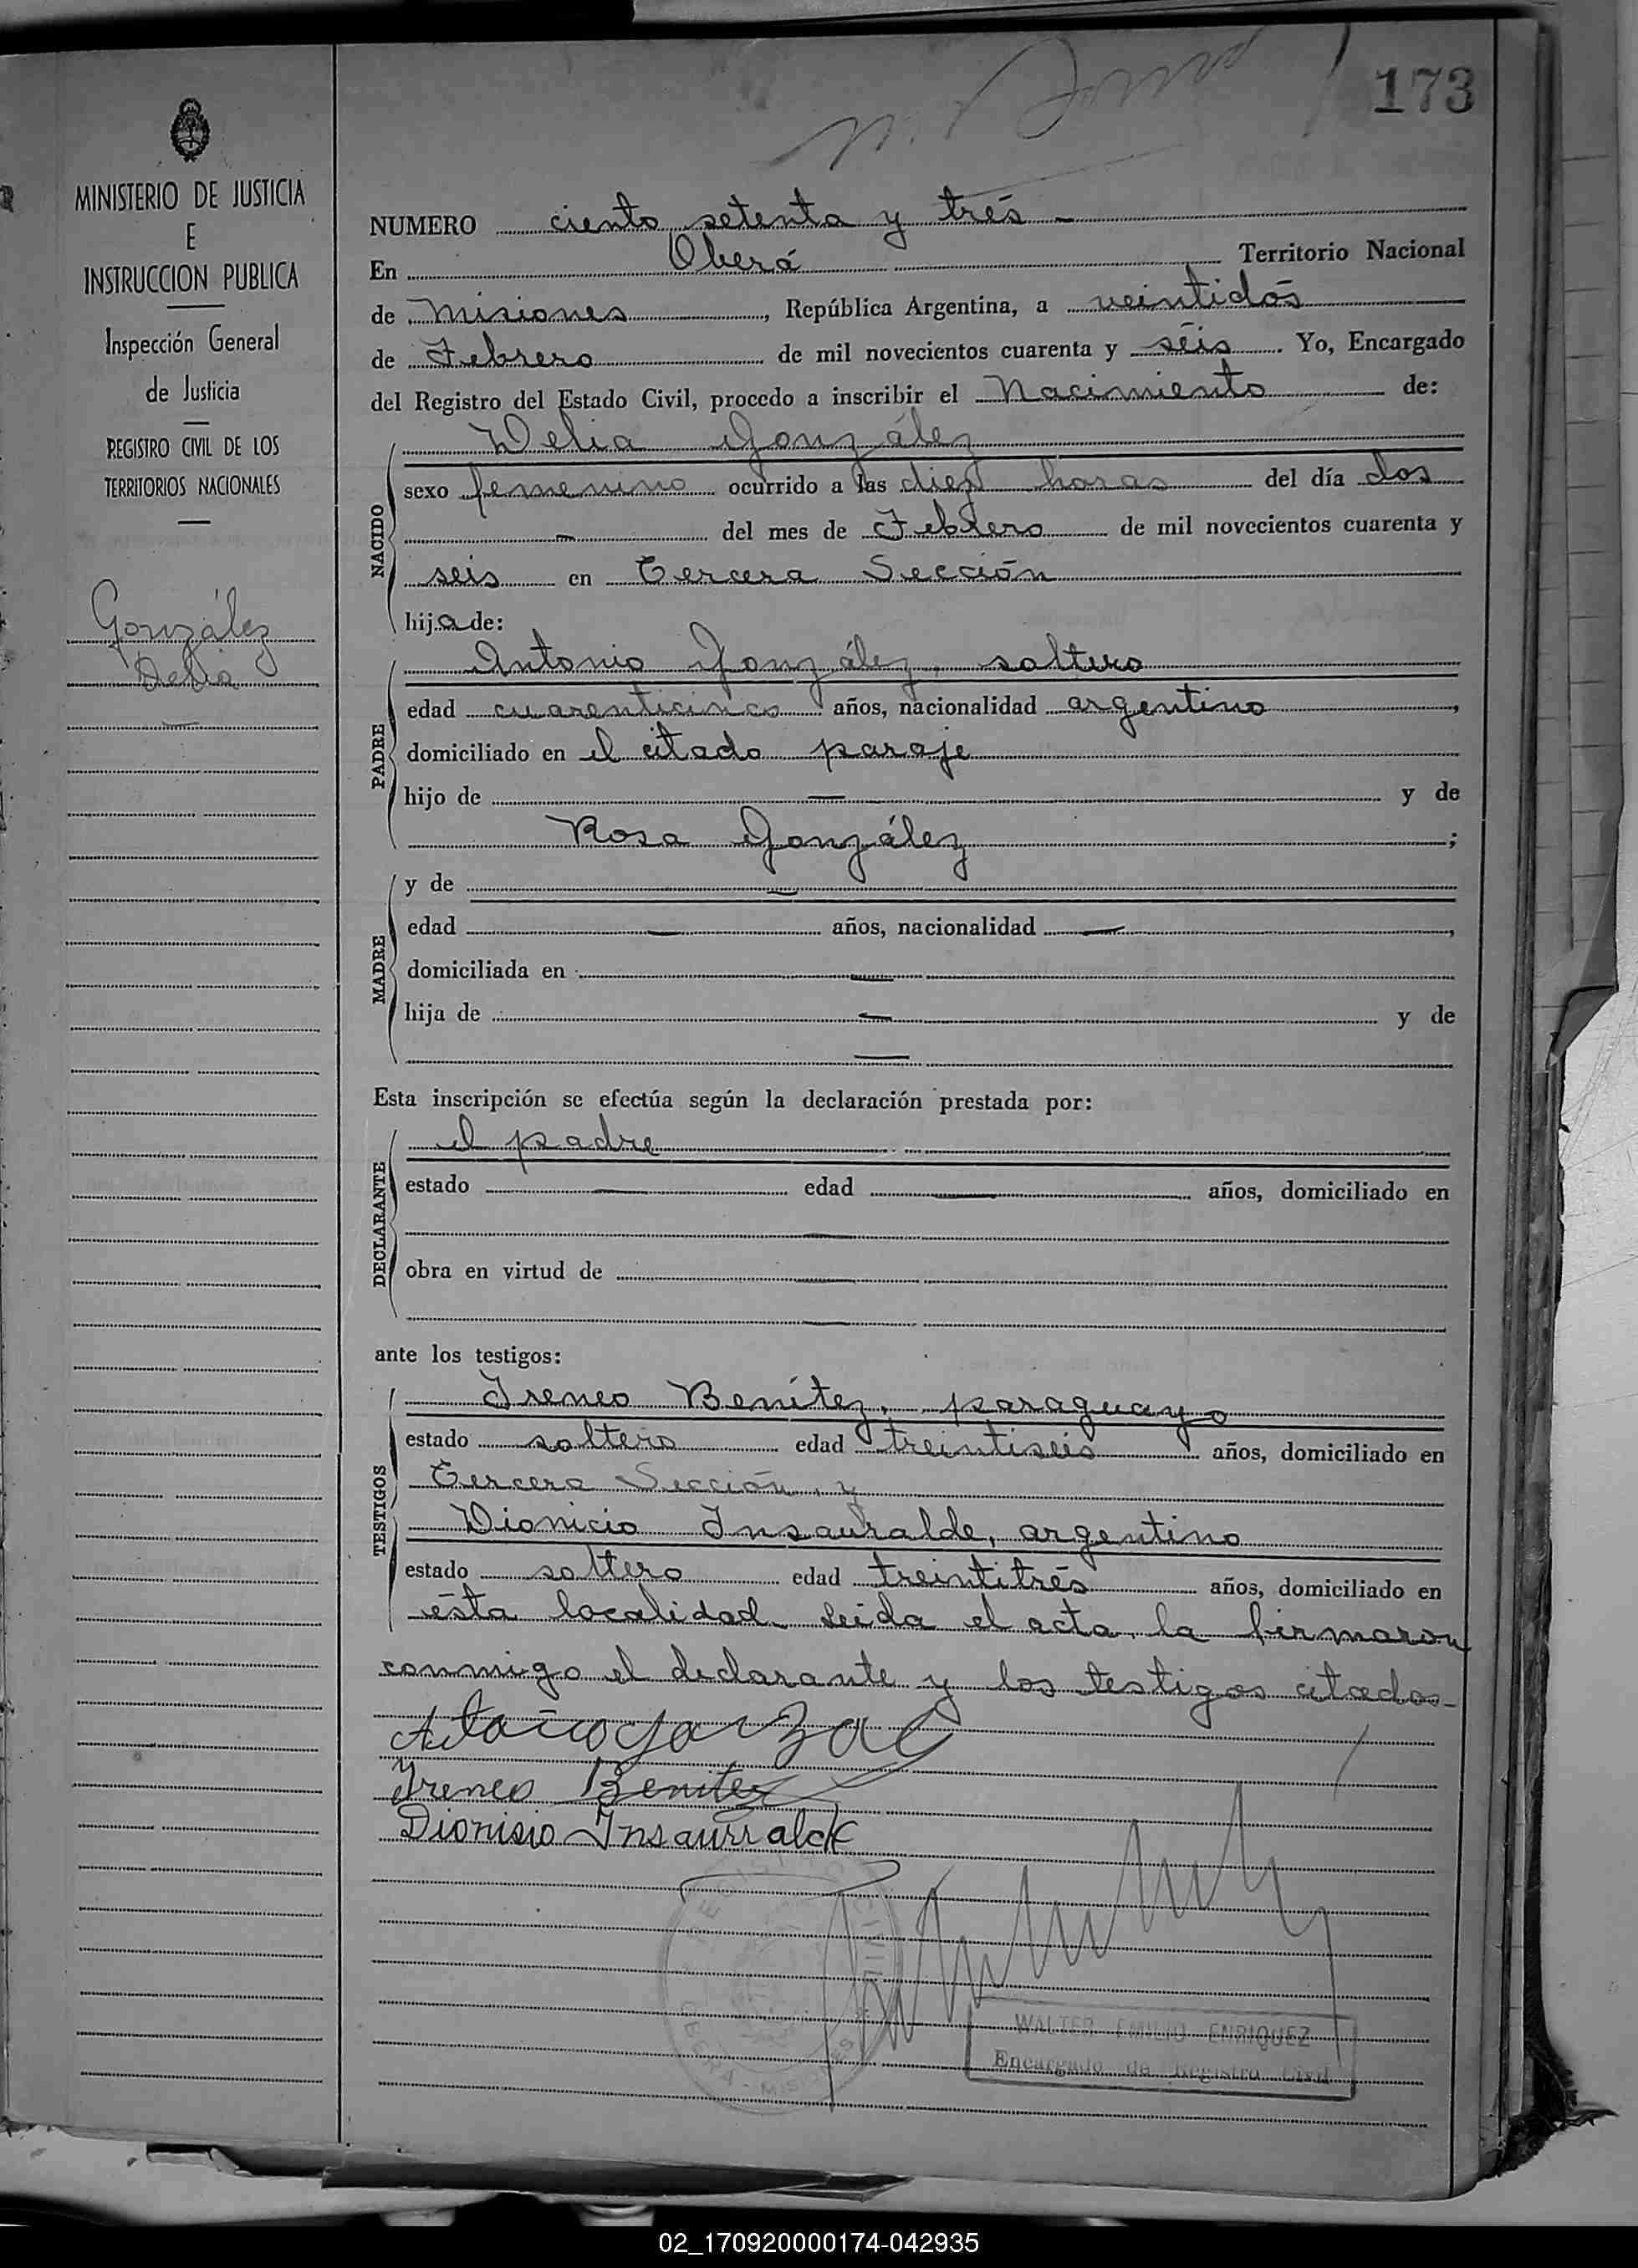 173
MINISTERIO DE JUSTICIA
E
INSTRUCCION PUBLICA
Inspección General
de Justicia
REGISTRO CIVIL DE LOS
TERRITORIOS NACIONALES
González
Delia
NUMERO ciento setenta y trés -
En Oberá Territorio Nacional
de Misiones, República Argentina, a veintidós
de Febrero de mil novecientos cuarenta y séis. Yo, Encargado
del Registro del Estado Civil, procedo a inscribir el Nacimiento de:
NACIDO
Delia González
sexo femenino ocurrido a las diez horas del día dos
- del mes de Febrero de mil novecientos cuarenta y
seis en Tercera Sección
hija de:
PADRE
Antonio González, soltero
edad cuarenticinco años, nacionalidad argentino,
domiciliado en el citado paraje
hijo de — y de
Rosa González;
MADRE
y de —
edad — años, nacionalidad —,
domiciliada en —
hija de — y de
—
Esta inscripción se efectúa según la declaración prestada por:
DECLARANTE
el padre
estado — edad — años, domiciliado en
—
obra en virtud de —
—
ante los testigos:
TESTIGOS
Ireneo Benítez, paraguayo
estado soltero edad treintiséis años, domiciliado en
Tercera Sección, y
Dionicio Insauralde, argentino
estado soltero edad treintitrés años, domiciliado en
ésta localidad. Leida el acta, la firmaron
conmigo el declarante y los testigos citados-
Ireneo Benitez
Dionisio Insaurralde
WALTER EMILIO ENRIQUEZ
Encargado de Registro Civil
02_170920000174-042935